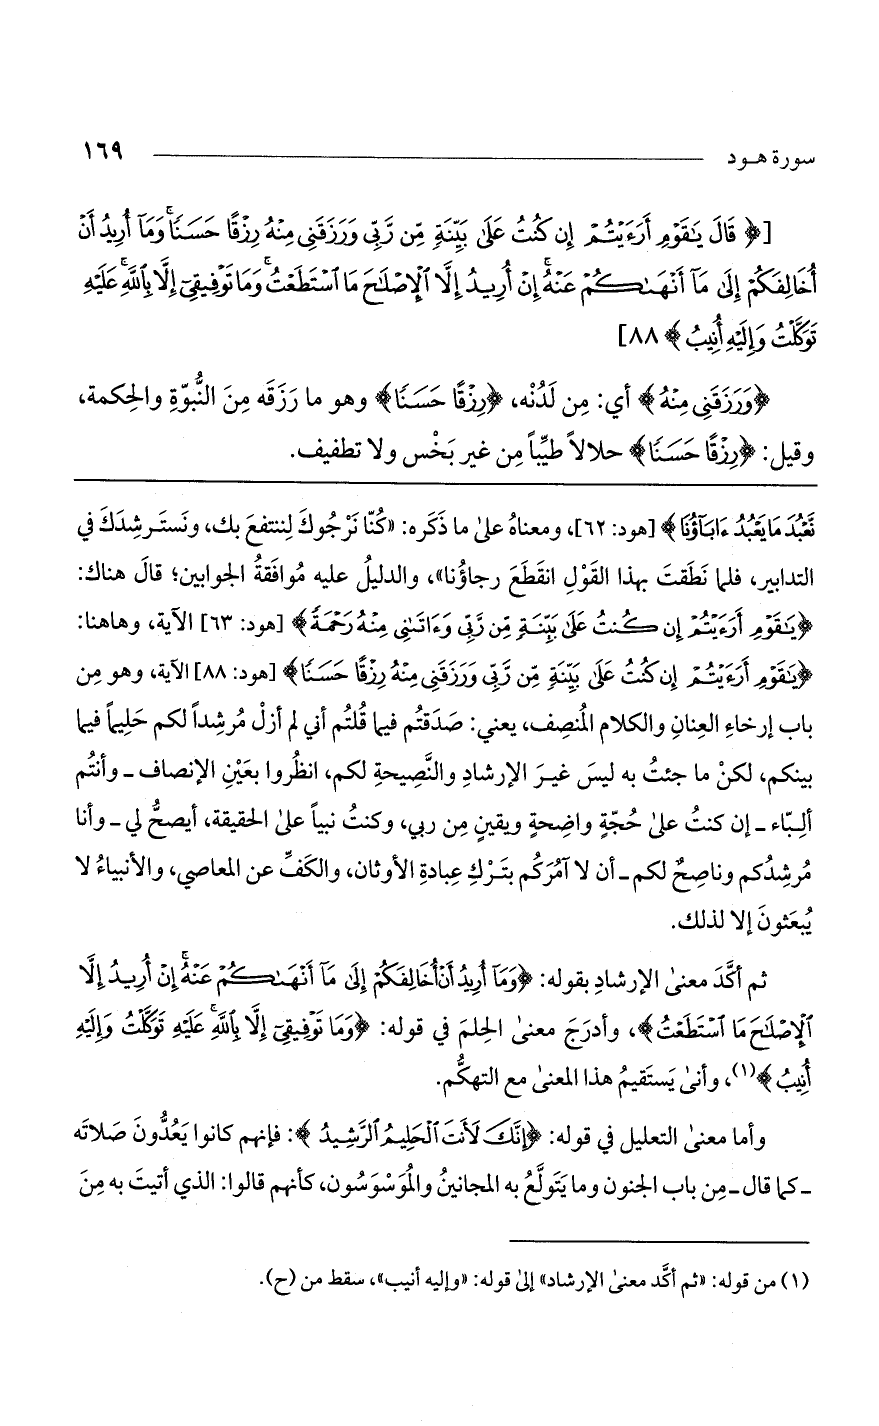 سورة هـود ١٦٩
[﴿ قَالَ يَـٰقَوْمِ أَرَءَيْتُمْ إِن كُنتُ عَلَىٰ بَيِّنَةٍ مِّن رَّبِّى وَرَزَقَنِى مِنْهُ رِزْقًا حَسَنًا ۚ وَمَآ أُرِيدُ أَنْ
أُخَالِفَكُمْ إِلَىٰ مَآ أَنْهَـٰكُمْ عَنْهُ ۚ إِنْ أُرِيدُ إِلَّا ٱلْإِصْلَـٰحَ مَا ٱسْتَطَعْتُ ۚ وَمَا تَوْفِيقِىٓ إِلَّا بِٱللَّهِ ۚ عَلَيْهِ
تَوَكَّلْتُ وَإِلَيْهِ أُنِيبُ ﴾ ٨٨]
﴿وَرَزَقَنِى مِنْهُ﴾ أي: مِن لَدُنْه، ﴿رِزْقًا حَسَنًا﴾ وهو ما رَزَقَه مِنَ النُّبوّةِ والحِكمة،
وقيل: ﴿رِزْقًا حَسَنًا﴾ حلالاً طيِّباً مِن غير بَخْس ولا تطفيف.
نَّعْبُدَ مَا يَعْبُدُ ءَابَآؤُنَا﴾ [هود: ٦٢]، ومعناهُ علىٰ ما ذَكَره: «كُنّا نَرْجُوكَ لِننتفعَ بك، ونَستَرشِدَكَ في
التدابير، فلما نَطَقتَ بهذا القَوْلِ انقَطَعَ رجاؤُنا»، والدليلُ عليه مُوافَقةُ الجوابين؛ قالَ هناك:
﴿يَـٰقَوْمِ أَرَءَيْتُمْ إِن كُنتُ عَلَىٰ بَيِّنَةٍ مِّن رَّبِّى وَءَاتَىٰنِى مِنْهُ رَحْمَةً﴾ [هود: ٦٣] الآية، وهاهنا:
﴿يَـٰقَوْمِ أَرَءَيْتُمْ إِن كُنتُ عَلَىٰ بَيِّنَةٍ مِّن رَّبِّى وَرَزَقَنِى مِنْهُ رِزْقًا حَسَنًا﴾ [هود: ٨٨] الآية، وهو مِن
باب إرخاءِ العِنانِ والكلام المُنصِف، يعني: صَدَقتُم فيما قُلتُم أني لم أزلْ مُرشِداً لكم حَلِيماً فيما
بينكم، لكنْ ما جئتُ به ليسَ غيرَ الإرشادِ والنَّصِيحةِ لكم، انظُروا بعَيْنِ الإنصاف ـ وأنتُم
ألِبّاء ـ إن كنتُ علىٰ حُجّةٍ واضِحةٍ ويقينٍ مِن ربي، وكنتُ نبياً علىٰ الحقيقة، أيصحُّ لي ـ وأنا
مُرشِدُكم وناصِحٌ لكم ـ أن لا آمُرَكُم بتَركِ عِبادةِ الأوثان، والكَفِّ عن المعاصي، والأنبياءُ لا
يُبعَثونَ إلا لذلك.
ثم أكَّدَ معنىٰ الإرشادِ بقوله: ﴿وَمَآ أُرِيدُ أَنْ أُخَالِفَكُمْ إِلَىٰ مَآ أَنْهَـٰكُمْ عَنْهُ ۚ إِنْ أُرِيدُ إِلَّا
ٱلْإِصْلَـٰحَ مَا ٱسْتَطَعْتُ﴾، وأدرَجَ معنىٰ الحِلمَ في قوله: ﴿وَمَا تَوْفِيقِىٓ إِلَّا بِٱللَّهِ ۚ عَلَيْهِ تَوَكَّلْتُ وَإِلَيْهِ
أُنِيبُ﴾(١)، وأنىٰ يَستَقيمُ هذا المعنىٰ مع التهكُّم.
وأما معنىٰ التعليل في قوله: ﴿إِنَّكَ لَأَنتَ ٱلْحَلِيمُ ٱلرَّشِيدُ ﴾: فإنهم كانوا يَعُدُّونَ صَلاتَه
ـ كما قال ـ مِن باب الجنون وما يَتَولَّعُ به المجانينُ والمُوَسْوَسُون، كأنهم قالوا: الذي أتيتَ به مِنَ
(١) من قوله: «ثم أكَّد معنىٰ الإرشاد» إلىٰ قوله: «وإليه أنيب»، سقط من (ح).